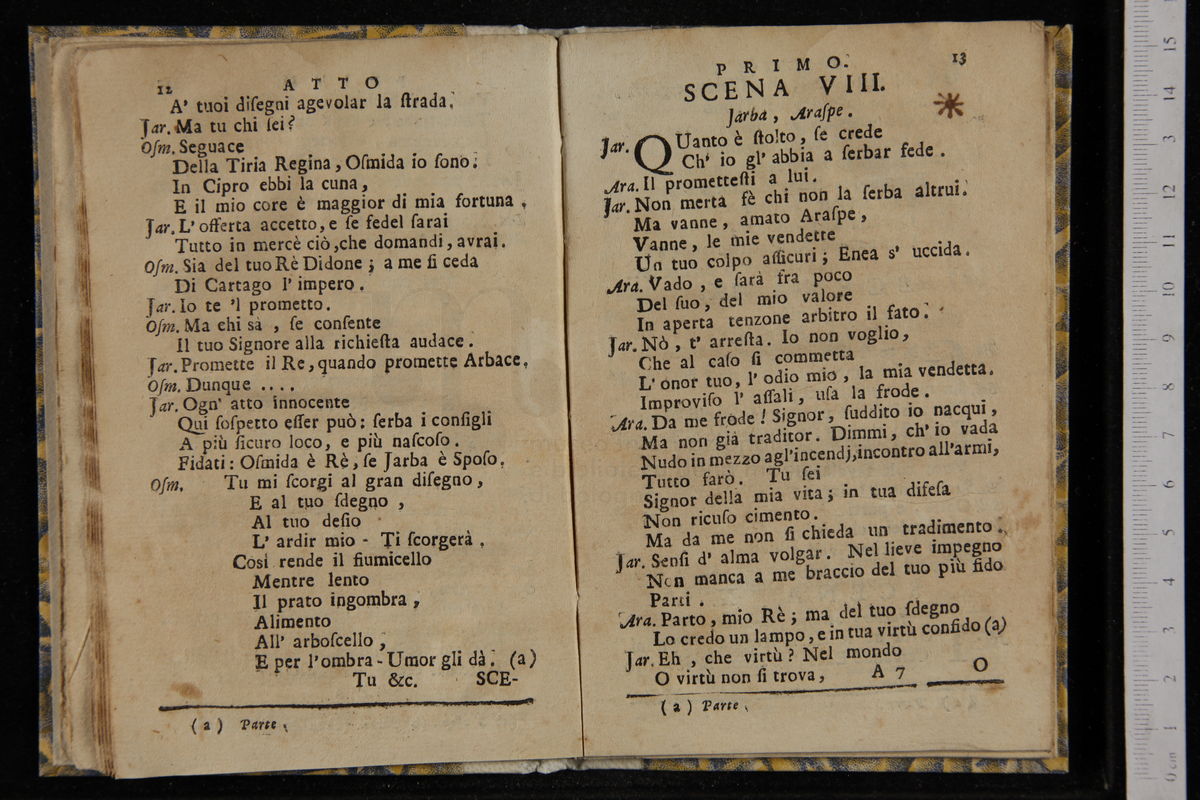 12 ATTO
A' tuoi disegni agevolar la ſtrada.
Jar. Ma tu chi ſei?
Oſm. Seguace
Della Tiria Regina, Oſmida io ſono.
In Cipro ebbi la cuna,
E il mio core è maggior di mia fortuna.
Jar. L' offerta accetto, e ſe fedel ſarai
Tutto in mercè ciò, che domandi, avrai.
Oſm. Sia del tuo Rè Didone; a me ſi ceda
Di Cartago l' impero.
Jar. Io te 'l prometto.
Oſm. Ma chi sà, ſe conſente
Il tuo Signore alla richieſta audace.
Jar. Promette il Re, quando promette Arbace.
Oſm. Dunque ....
Jar. Ogn' atto innocente
Qui ſoſpetto eſſer può: ſerba i conſigli
A più ſicuro loco, e più naſcoſo.
Fidati: Oſmida è Rè, ſe Jarba è Spoſo.
Oſm. Tu mi ſcorgi al gran diſegno,
E al tuo ſdegno,
Al tuo deſio
L' ardir mio - Ti ſcorgerà.
Così rende il fiumicello
Mentre lento
Il prato ingombra,
Alimento
All' arboſcello,
E per l'ombra - Umor gli dà. (a)
Tu &c. SCE-
(a) Parte.
PRIMO. 13
SCENA VIII.
Jarba, Araſpe.
Jar. QUanto è ſtolto, ſe crede
Ch' io gl' abbia a ſerbar fede.
Ara. Il prometteſti a lui.
Jar. Non merta fè chi non la ſerba altrui.
Ma vanne, amato Araſpe,
Vanne, le mie vendette
Un tuo colpo aſſicuri; Enea s' uccida.
Ara. Vado, e ſarà fra poco
Del ſuo, del mio valore
In aperta tenzone arbitro il fato.
Jar. Nò, t' arreſta. Io non voglio,
Che al caſo ſi commetta
L' onor tuo, l' odio mio, la mia vendetta.
Improviſo l' aſſali, uſa la frode.
Ara. Da me frode! Signor, ſuddito io nacqui,
Ma non già traditor. Dimmi, ch' io vada
Nudo in mezzo agl'incendj, incontro all'armi,
Tutto farò. Tu ſei
Signor della mia vita; in tua difeſa
Non ricuſo cimento.
Ma da me non ſi chieda un tradimento.
Jar. Senſi d' alma volgar. Nel lieve impegno
Non manca a me braccio del tuo più fido
Parti.
Ara. Parto, mio Rè; ma del tuo ſdegno
Lo credo un lampo, e in tua virtù confido (a)
Jar. Eh, che virtù? Nel mondo
O virtù non ſi trova, A 7 O
(a) Parte.